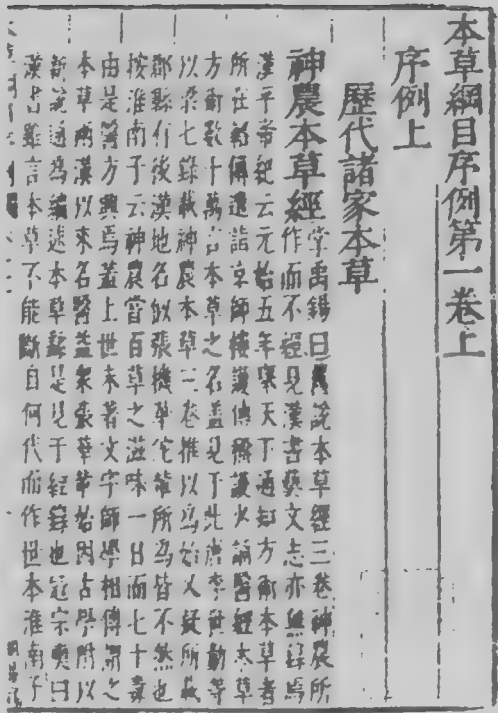 本草綱目序例第一卷上
序例上
歷代諸家本草
神農本草經掌禹錫曰舊說本草經三卷神農所
作而不經見漢書藝文志亦無錄焉
漢平帝紀云元始五年舉天下通知方術本草者
所在軺傳遣詣京師樓護傳稱護少誦醫經本草
方術數十萬言本草之名蓋見于此唐李世勣等
以梁七錄載神農本草三卷推以為始又疑所載
郡縣有後漢地名似張機華佗輩所為皆不然也
按淮南子云神農嘗百草之滋味一日而七十毒
由是醫方興焉蓋上世未著文字師學相傳謂之
本草兩漢以來名醫益衆張華輩始因古學附以
新說通為編述本草繇是見于經錄也寇宗奭曰
漢書雖言本草不能斷自何代而作世本淮南子